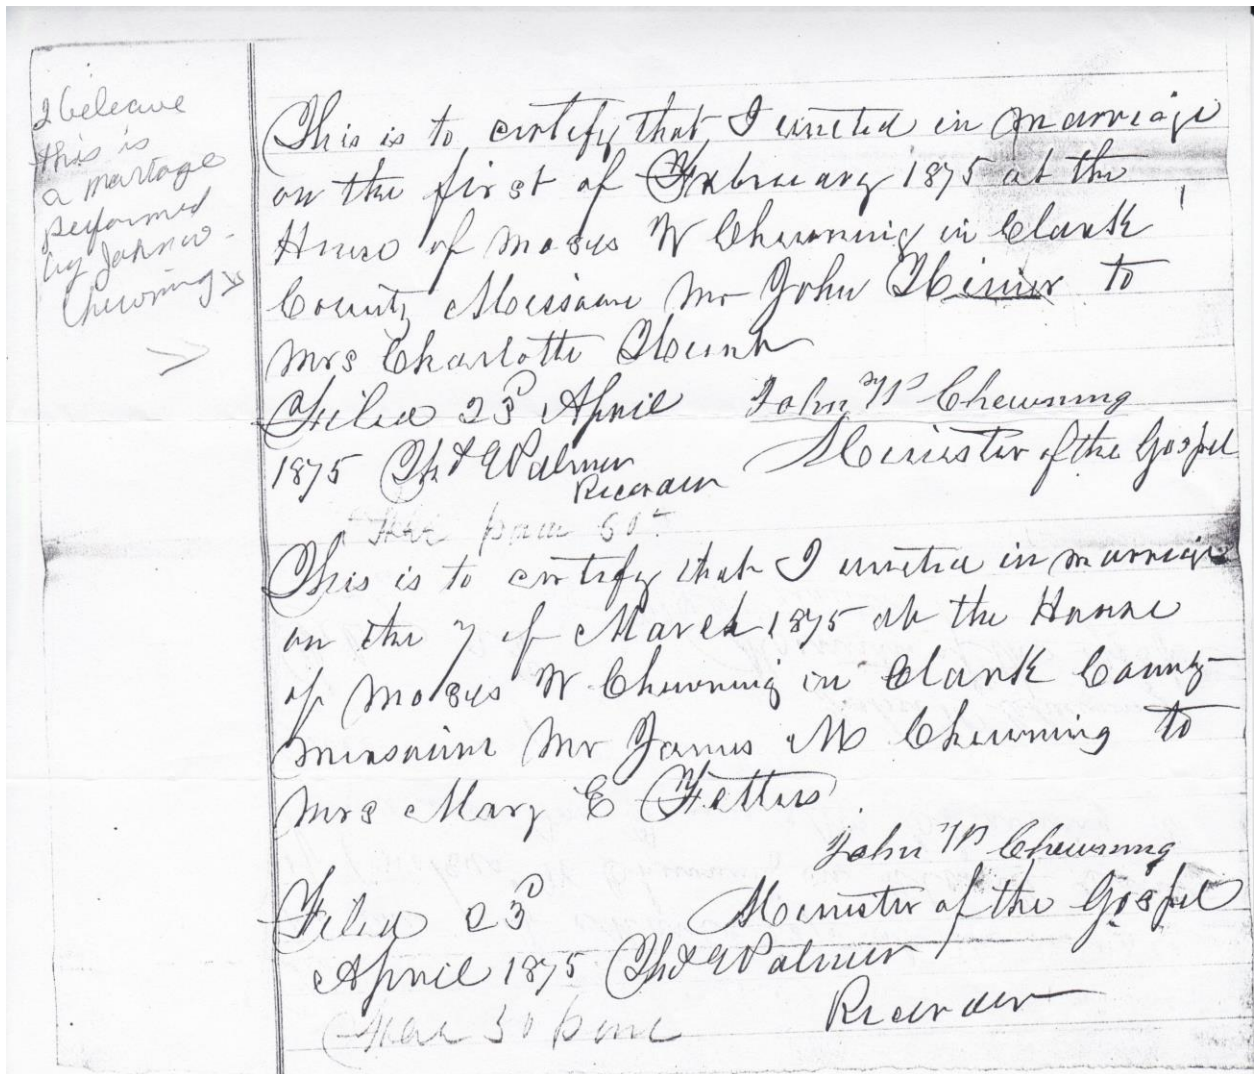 I beleave
this is
a martage
performed
by John w.
Chewning
This is to certify that I united in marriage
on the first of February 1875 at the
House of Moses W Chewning in Clark
County Missouri Mr John to
Mrs Charlotte
Filed 23d April John W Chewning
1875 Thos E Palmer Minister of the Gospel
Recorder
This is to certify that I united in marriage
on the 7 of March 1875 at the House
of Moses W Chewning in Clark County
Missouri Mr James M Chewning to
Mrs Mary E Fetters
John W Chewning
Filed 23d Minister of the Gospel
April 1875 Thos E Palmer
Recorder